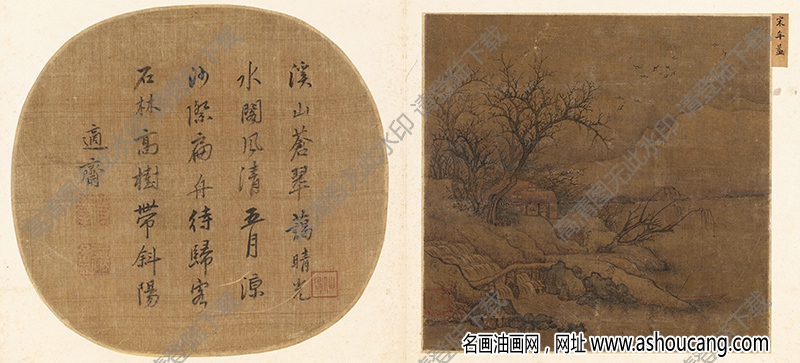 溪山蒼翠藹晴光
水閣風清五月涼
沙際扁舟待歸客
石林高樹帶斜陽
適齋
高清图无此水印
名画油画网，网址 www.ashoucang.com